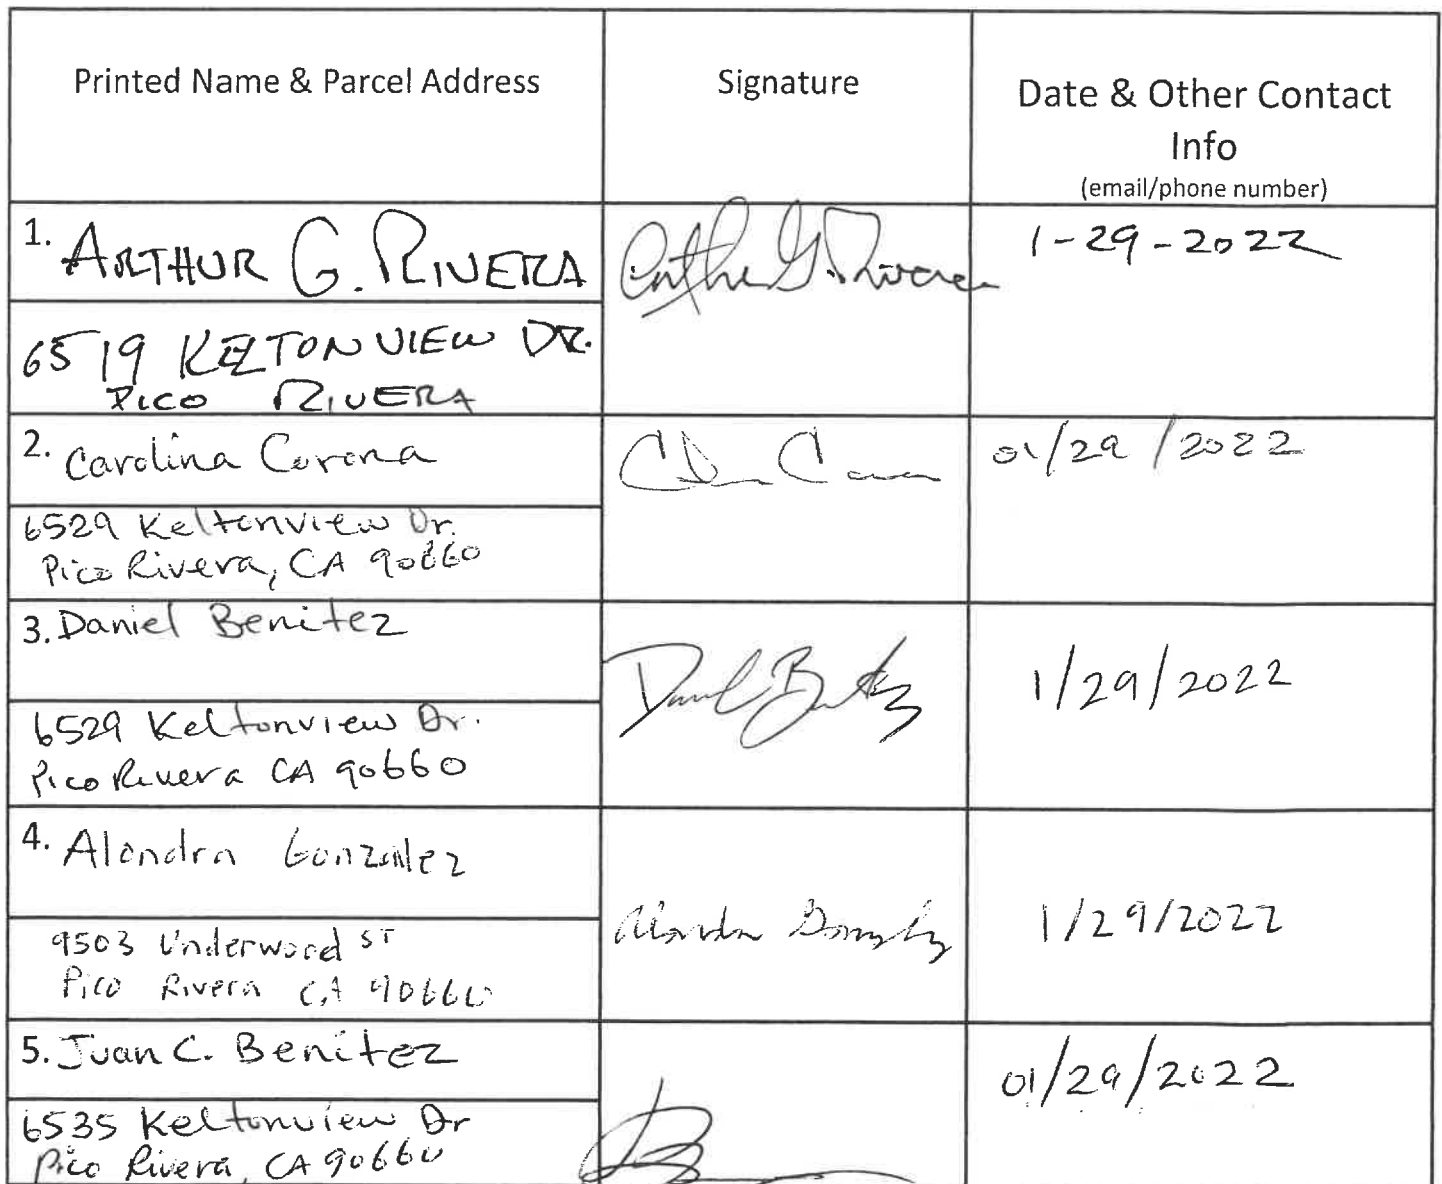 Printed Name & Parcel Address
Signature
Date & Other Contact
Info
(email/phone number)
1. ARTHUR G. RIVERA
Arthur G. Rivera
1-29-2022
6519 KELTONVIEW DR.
PICO RIVERA
2. Carolina Corona
01/29/2022
6529 Keltonview Dr.
Pico Rivera, CA 90660
3. Daniel Benitez
Daniel Benitez
1/29/2022
6529 Keltonview Dr.
Pico Rivera CA 90660
4. Alondra Gonzalez
Alondra Gonzalez
1/29/2022
9503 Underwood ST
Pico Rivera CA 90660
5. Juan C. Benitez
01/29/2022
6535 Keltonview Dr
Pico Rivera, CA 90660